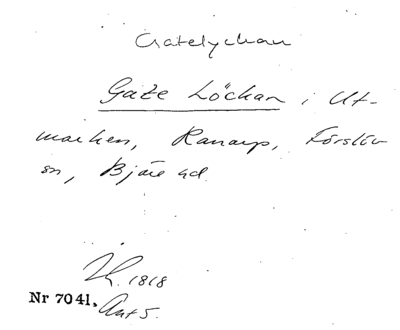 Gatelyckan
Gate Löckan i Ut-
marken, Ranarp, Förslöv
sn, Bjäre hd
1818
Nr 7041. Akt 5.